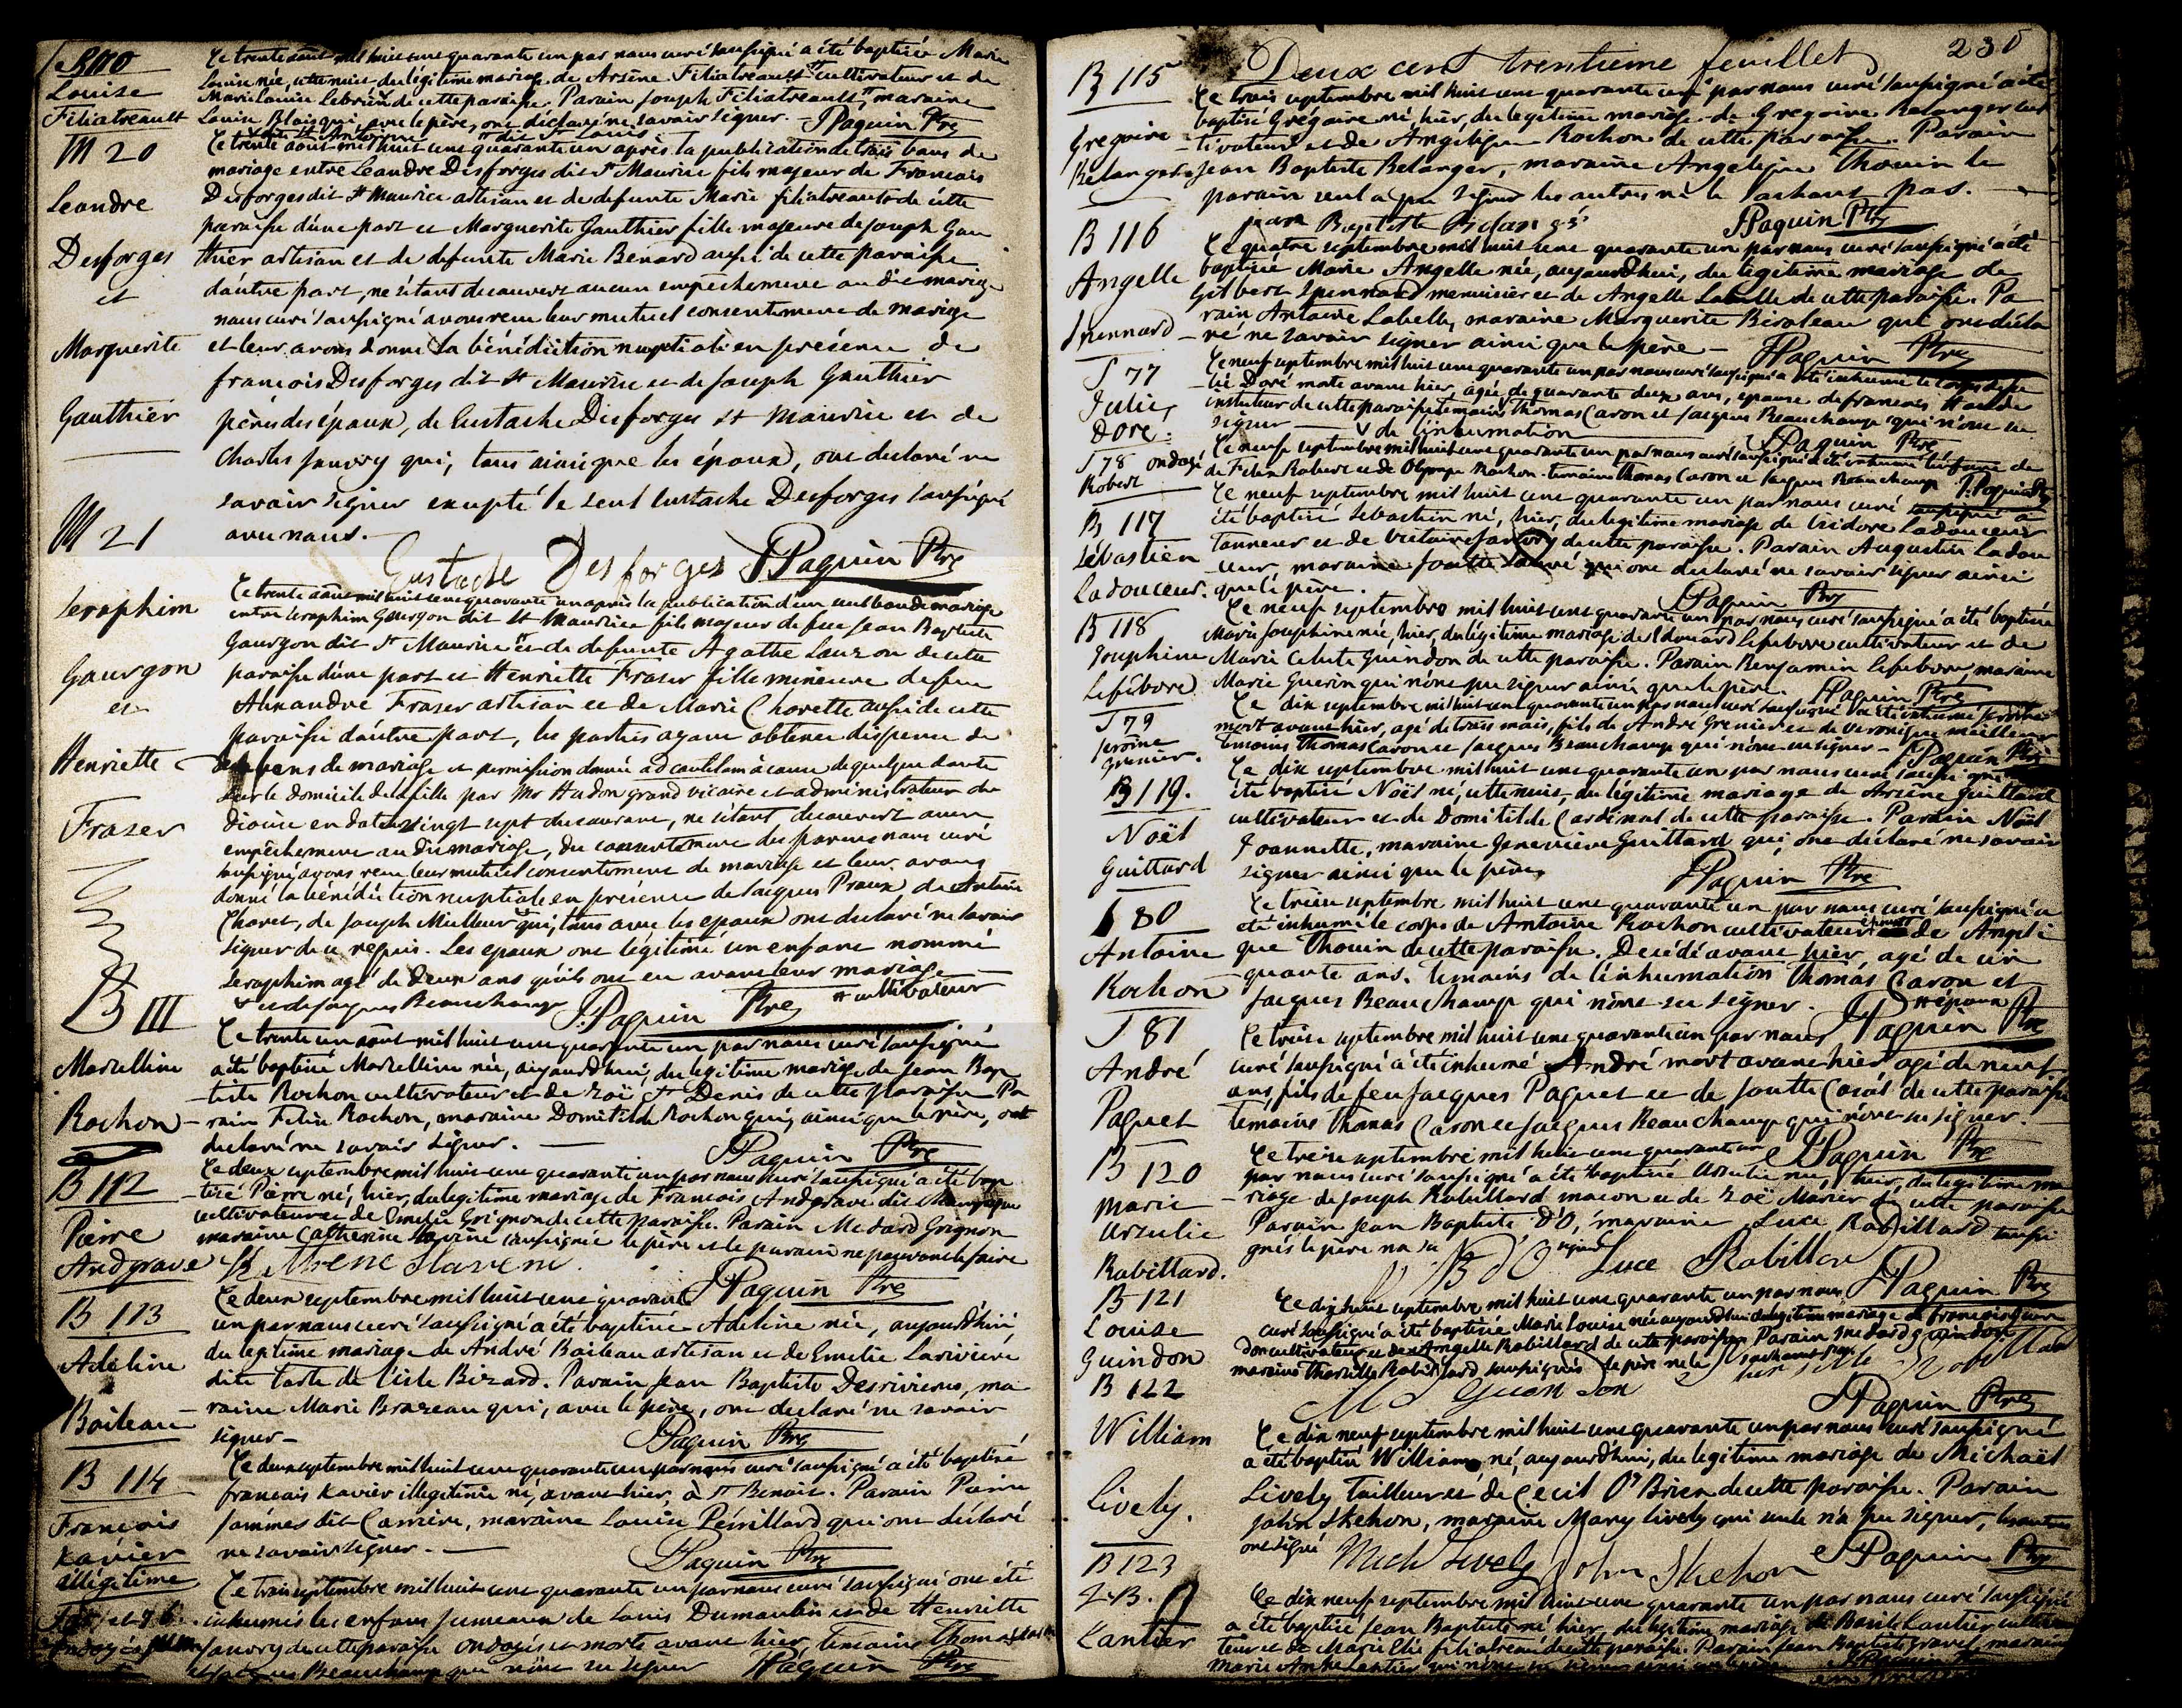 B 110
Louise
Filiatreault
Le trente août mil huit cent quarante un par nous curé soussigné a été baptisée Marie
Louise née, cette nuit, du légitime mariage de Arsène Filiatreault cultivateur et de
Marie Louise de cette paroisse. Parain Joseph Filiatreault, maraine
Louise qui, avec le père, ont déclaré ne savoir signer. JPaquin Ptre
dit St Louis
M 20
Leandre
Desforges
et
Marguerite
Gauthier
Le trente août mil huit cent quarante un après la publication de trois bans de
mariage entre Leandre Desforges dit St Maurice fils majeur de Francois
Desforges dit St Maurice artisan et de defunte Marie filiatreault de cette
paroisse d'une part et Marguerite Gauthier fille majeure de Joseph Gau
thier artisan et de defunte Marie Benard aussi de cette paroisse
d'autre part, ne s'étant decouvert aucun empêchement au dit mariage
nous curé soussigné avons reçu leur mutuel consentement de mariage
et leur avons donné la bénédiction nuptiale en présence de
francois Desforges dit St Maurice et de Joseph Gauthier
pères des époux, de Eustache Desforges St Maurice et de
Charles Janvry qui, tous ainsi que les époux, ont declaré ne
savoir signer excepté le seul Eustache Desforges soussigné
avec nous.
Eustache Desforges JPaquin Ptre
M 21
Seraphim
Gourgon
et
Henriette
Fraser
Le trente août mil huit cent quarante un après la publication d'un seul ban de mariage
entre Seraphim Gourgon dit St Maurice fils majeur de feu Jean Baptiste
Gourgon dit St Maurice et de defunte Agathe Lauzon de cette
paroisse d'une part et Henriette Fraser fille mineure de feu
Alexandre Fraser artisan et de Marie Chorette aussi de cette
paroisse d'autre part, les parties ayant obtenu dispense de
bans de mariage et permission donnée ad cautelam à cause de quelque doute
sur le domicile de la fille par Mr Hudon grand vicaire et administrateur du
diocèse en date vingt sept du courant, ne s'étant decouvert aucun
empêchement au dit mariage, du consentement des parens nous curé
soussigné avons reçu leur mutuel consentement de mariage et leur avons
donné la bénédiction nuptiale en présence de Jacques Proux de Antoine
Choret, de Joseph Meilleur qui, tous avec les epoux ont declaré ne savoir
signer de ce requis. Les epoux ont légitimé un enfant nommé
Seraphim agé de deux ans qu'ils ont eu avant leur mariage
et de Jacques Beauchamp JPaquin Ptre cultivateur
B 111
Marcelline
Rochon
Le trente un août mil huit cent quarante un par nous curé soussigné
a été baptisé Marcelline née, aujourd'hui, du légitime mariage de Jean Bap
tiste Rochon cultivateur et de Zoé St Denis de cette paroisse Pa
rain Felix Rochon, maraine Domitilde Rochon qui, ainsi que le père, ont
declaré ne savoir signer. JPaquin Ptre
B 112
Pierre
Andgrave
Le deux septembre mil huit cent quarante un par nous curé soussigné a été bap
tisé Pierre né, hier, du legitime mariage de Francois Andgrave dit Champagne
cultivateur et de Emelie Grignon de cette paroisse. Parain Medard Grignon
maraine Catherine soussignée le père et le parain ne pouvant le faire
JPaquin Ptre
B 113
Adeline
Boileau
Le deux septembre mil huit cent quarante
un par nous curé soussigné a été baptisée Adeline née, aujourd'hui,
du legitime mariage de André Boileau artisan et de Emelie Larivière
dite Taste de l'isle Bizard. Parain Jean Baptiste Desrivieres, ma
raine Marie Brazeau qui, avec le père, ont declaré ne savoir
signer— JPaquin Ptre
B 114
Francois
Xavier
illégitime
Le deux septembre mil huit cent quarante un par nous curé soussigné a été baptisé
francois Xavier illegitime né, avant hier, à St Benoit. Parain Pierre
Jammes dit Carrière, maraine Louise Perrillard qui ont déclaré
ne savoir signer. — JPaquin Ptre
Le trois septembre mil huit cent quarante un par nous curé soussigné ont été
inhumés les enfans jumeaux de Louis Dumoulin et de Henriette
Janvry de cette paroisse ondoyés et morts avant hier, temoins Thomas
et Jacques Beauchamp qui n'ont su signer JPaquin Ptre
Deux cent trentieme feuillet 230
B 115
Gregoire
Belanger
Le trois septembre mil huit cent quarante un par nous curé soussigné a été
baptisé Grégoire né, hier, du legitime mariage de Gregoire Belanger cul
tivateur et de Angelique Rochon de cette paroisse. Parain
Jean Baptiste Belanger, maraine Angelique Thouin le
parain seul a pu signer les autres ne le sachant pas.
jean Baptiste JPaquin Ptre
B 116
Angelle
Spennard
Le quatre septembre mil huit cent quarante un par nous curé soussigné a été
baptisée Marie Angelle née, aujourd'hui, du légitime mariage de
Gilbert Spennard menuisier et de Angelle Labelle de cette paroisse. Pa
rain Antoine Labelle, maraine Marguerite Biroleau qui ont décla
ré ne savoir signer ainsi que le père — JPaquin Ptre
S 77
Julie
Doré
Le neuf septembre mil huit cent quarante un par nous curé soussigné a été inhumé le corps de Ju
lie Doré morte avant hier, agée de quarante deux ans, epouse de francois
instituteur de cette paroisse temoins Thomas Caron et Jacques Beauchamp qui n'ont su
signer — de l'inhumation JPaquin Ptre
S 78 ondoyé
Robert
Le neuf septembre mil huit cent quarante un par nous curé soussigné a été inhumé l'enfant de
de Felix Robert et de Olympe Rochon. temoins Thomas Caron et Jacques Beauchamp J. Paquin Ptre
B 117
Sébastien
Ladouceur.
Le neuf septembre mil huit cent quarante un par nous curé soussigné a
été baptisé Sebastien né, hier, du legitime mariage de Isidore Ladouceur
tanneur et de Victoire de cette paroisse. Parain Augustin Ladou
ceur maraine qui ont declaré ne savoir signer ainsi
que le père. JPaquin Ptre
B 118
Josephine
Lefebvre
Le neuf septembre mil huit cent quarante un par nous curé soussigné a été baptisée
Marie Josephine née, hier, du légitime mariage de Edouard Lefebvre cultivateur et de
Marie Celeste Guindon de cette paroisse. Parain Benjamin Lefebvre, maraine
Marie Guerin qui n'ont pu signer ainsi que le père. JPaquin Ptre
S 79
Jerôme
Grenier.
Le dix septembre mil huit cent quarante un par nous curé soussigné a été inhumé Jerôme
mort avant hier, agé de trois mois, fils de André Grenier et de Veronique Meilleur
temoins Thomas Caron et Jacques Beauchamp qui n'ont su signer — JPaquin Ptre
B 119.
Noël
Guittard
Le dix septembre mil huit cent quarante un par nous curé soussigné
été baptisé Noël né, cette nuit, du legitime mariage de Arsène Guittard
cultivateur et de Domitilde Cardinal de cette paroisse. Parain Noël
Joannette, maraine Genevieve Guittard qui, ont déclaré ne savoir
signer ainsi que le père JPaquin Ptre
S 80
Antoine
Rochon
Le treize septembre mil huit cent quarante un par nous curé soussigné a
été inhumé le corps de Antoine Rochon cultivateur de Angeli
que Thouin de cette paroisse. Decédé avant hier, agé de cin
quante ans. Temoins de l'inhumation Thomas Caron et
Jacques Beauchamp qui n'ont su signer. époux
JPaquin Ptre
S 81
André
Paquet
Le treize septembre mil huit cent quarante un par nous
curé soussigné a été inhumé André mort avant hier agé de neuf
ans, fils de feu Jacques Paquet et de de cette paroisse
temoins Thomas Caron et Jacques Beauchamp qui n'ont su signer.
JPaquin Ptre
B 120
Marie
Ursulie
Robillard.
Le treize septembre mil huit cent quarante un
par nous curé soussigné a été baptisée Ursulie née, hier, du legitime ma
riage de Joseph Robillard macon et de Zoé Marier de cette paroisse
Parain Jean Baptiste D'O, maraine Luce Robillard soussi
gnés le père n'a su signer
J B D'O Luce Robillar JPaquin Ptre
B 121
Louise
Guindon
Le dix huit septembre mil huit cent quarante un par nous
curé soussigné a été baptisée Marie Louise née aujourd'hui du légitime mariage de francois Guin
don cultivateur et de Angelle Robillard de cette paroisse Parain Medard Guindon
maraine Tharsille Robillard soussignés le père ne le sachant pas
M Guandon Robillard
JPaquin Ptre
B 122
William
Lively.
Le dix neuf septembre mil huit cent quarante un par nous curé soussigné
a été baptisé William né, aujourd'hui, du legitime mariage de Michaël
Lively Tailleur et de Cecil O'Brien de cette paroisse. Parain
John Skehon, maraine Mary Lively qui seule n'a pu signer, les autres
ont signé Mich Lively John Skehon JPaquin Ptre
B 123
J-B.
Lantier
Le dix neuf septembre mil huit cent quarante un par nous curé soussigné
a été baptisé Jean Baptiste né hier, du légitime mariage de Basile Lantier cultiva
teur et de Marie filiatreau de cette paroisse. Parain Jean Baptiste gravel, maraine